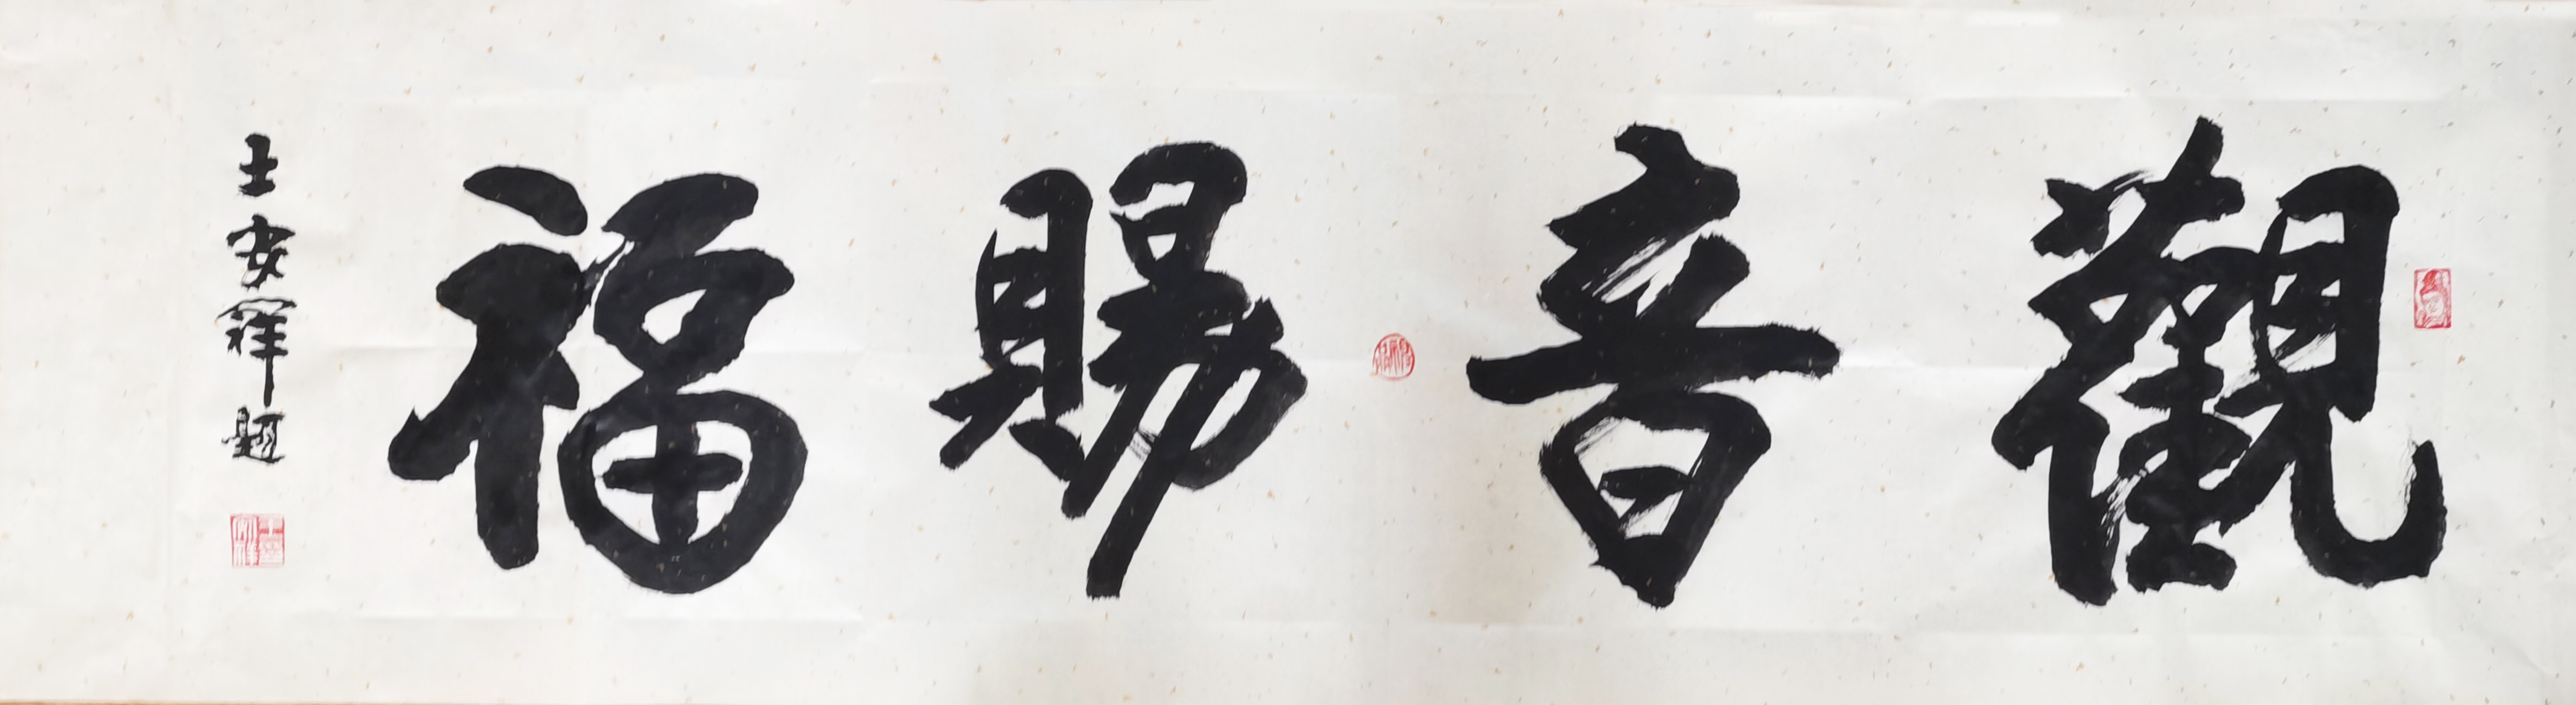 觀音賜福
王安祥題